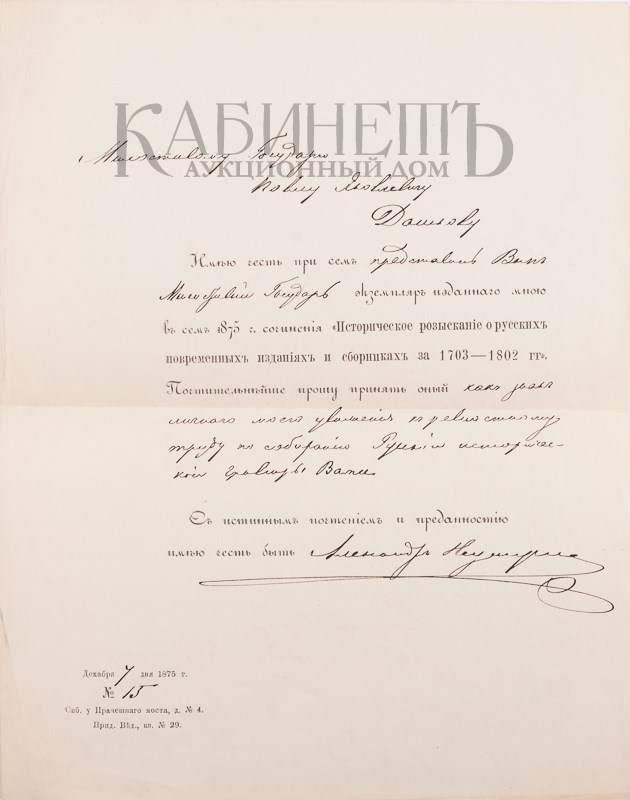 КАБИНЕТЪ
АУКЦИОННЫЙ ДОМ
Милостивому Государю
Павлу Яковлевичу
Дашкову
Имѣю честь при семъ представить Вамъ
Милостивый Государь экземпляръ изданнаго мною
въ семъ 1875 г. сочиненія «Историческое розысканіе о русскихъ
повременныхъ изданіяхъ и сборникахъ за 1703—1802 гг».
Почтительнѣйше прошу принять оный какъ знакъ
личнаго моего уваженія къ ревностному
труду по собиранію Русскихъ историче-
скихъ гравюръ Вами.
Съ истиннымъ почтеніемъ и преданностію
имѣю честь быть Александръ Неустроевъ
Декабря 7 дня 1875 г.
№ 15
Спб. у Прачешнаго моста, д. № 4.
Прид. Вѣд., кв. № 29.